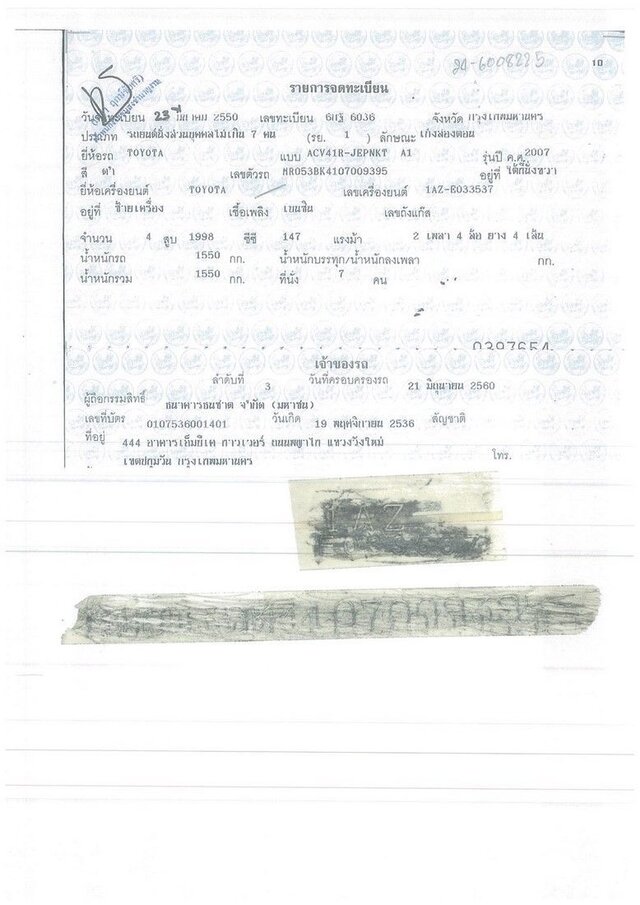 21-6008225
10
รายการจดทะเบียน
วันจดทะเบียน 23 มีนาคม 2550 เลขทะเบียน 6036 จังหวัด กรุงเทพมหานคร
ประเภท รถยนต์นั่งส่วนบุคคลไม่เกิน 7 คน (รย. 1 ) ลักษณะ เก๋งสองตอน
ยี่ห้อรถ TOYOTA แบบ ACV41R-JEPNKT A1 รุ่นปี ค.ศ. 2007
สี ดำ เลขตัวรถ MR053BK4107009395 อยู่ที่ ใต้ที่นั่งขวา
ยี่ห้อเครื่องยนต์ TOYOTA เลขเครื่องยนต์ 1AZ-E033537
อยู่ที่ ซ้ายเครื่อง เชื้อเพลิง เบนซิน เลขถังแก๊ส
จำนวน 4 สูบ 1998 ซีซี 147 แรงม้า 2 เพลา 4 ล้อ ยาง 4 เส้น
น้ำหนักรถ 1550 กก. น้ำหนักบรรทุก/น้ำหนักลงเพลา กก.
น้ำหนักรวม 1550 กก. ที่นั่ง 7 คน
0397654
เจ้าของรถ
ลำดับที่ 3 วันที่ครอบครองรถ 21 มิถุนายน 2560
ผู้ถือกรรมสิทธิ์ ธนาคารธนชาต จำกัด (มหาชน)
เลขที่บัตร 0107536001401 วันเกิด 19 พฤศจิกายน 2536 สัญชาติ
ที่อยู่ 444 อาคารเอ็มบีเค ทาวเวอร์ ถนนพญาไท แขวงวังใหม่
เขตปทุมวัน กรุงเทพมหานคร โทร.
1AZ